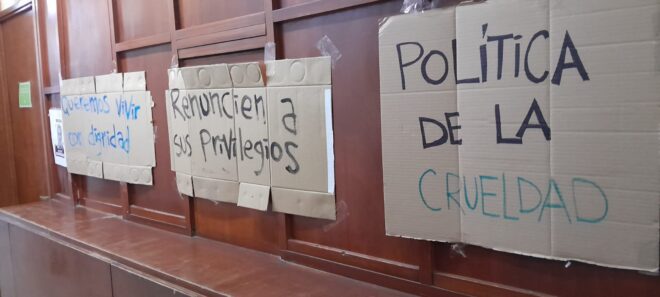 Queremos vivir
con dignidad
Renuncien a
sus Privilegios
POLÍTICA
DE LA
CRUELDAD